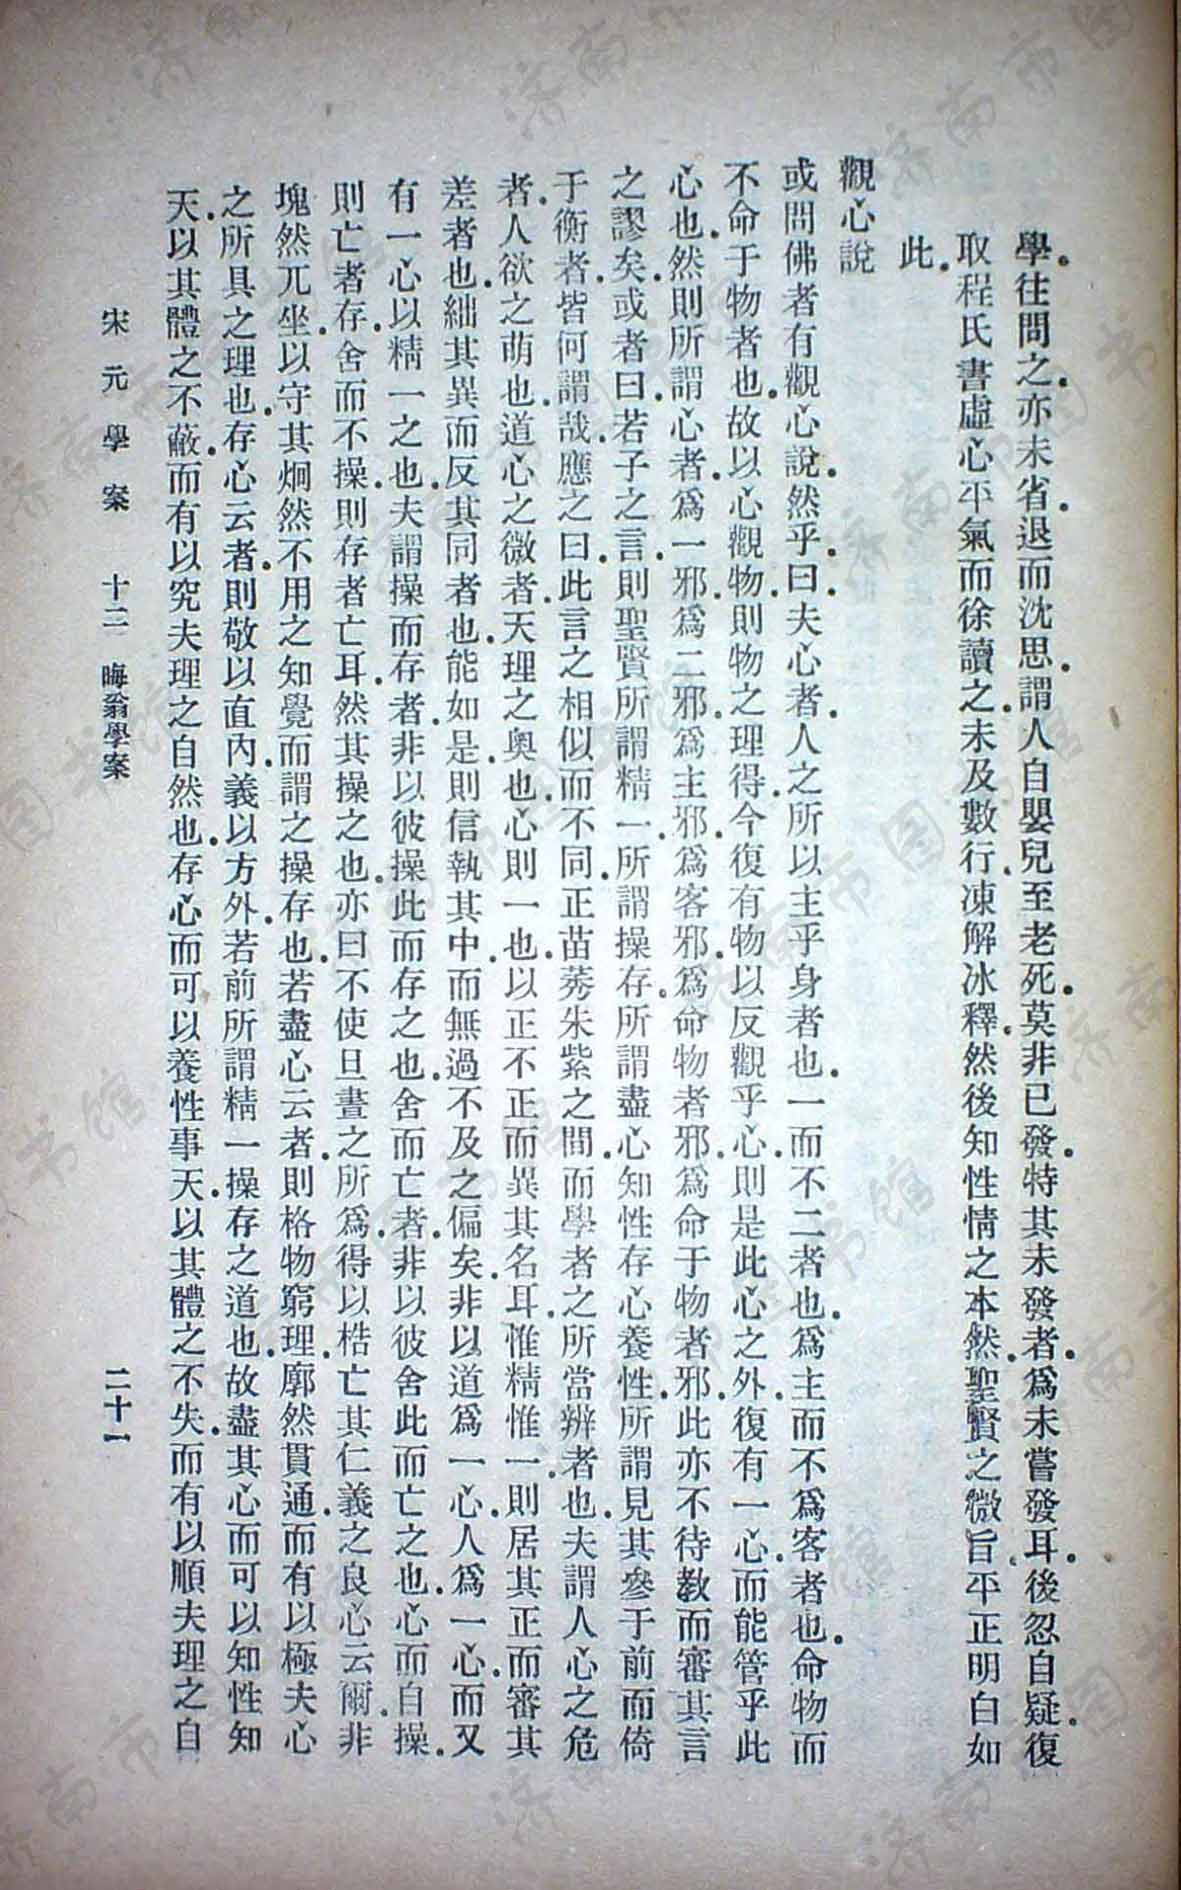 學往問之亦未省退而沈思謂人自嬰兒至老死莫非已發特其未發者爲未嘗發耳後忽自疑復
取程氏書虛心平氣而徐讀之未及數行凍解冰釋然後知性情之本然聖賢之微旨平正明白如
此
觀心說
或問佛者有觀心說然乎曰夫心者人之所以主乎身者也一而不二者也爲主而不爲客者也命物而
不命于物者也故以心觀物則物之理得今復有物以反觀乎心則是此心之外復有一心而能管乎此
心也然則所謂心者爲一邪爲二邪爲主邪爲客邪爲命物者邪爲命于物者邪此亦不待教而審其言
之謬矣或者曰若子之言則聖賢所謂精一所謂操存所謂盡心知性存心養性所謂見其參于前而倚
于衡者皆何謂哉應之曰此言之相似而不同正苗莠朱紫之間而學者之所當辨者也夫謂人心之危
者人欲之萌也道心之微者天理之奧也心則一也以正不正而異其名耳惟精惟一則居其正而審其
差者也絀其異而反其同者也能如是則信執其中而無過不及之偏矣非以道爲一心人爲一心而又
有一心以精一之也夫謂操而存者非以彼操此而存之也舍而亡者非以彼舍此而亡之也心而自操
則亡者存舍而不操則存者亡耳然其操之也亦曰不使旦晝之所爲得以梏亡其仁義之良心云爾非
塊然兀坐以守其炯然不用之知覺而謂之操存也若盡心云者則格物窮理廓然貫通而有以極夫心
之所具之理也存心云者則敬以直內義以方外若前所謂精一操存之道也故盡其心而可以知性知
天以其體之不蔽而有以究夫理之自然也存心而可以養性事天以其體之不失而有以順夫理之自
宋元學案 十二 晦翁學案 二十一
济南市图书馆